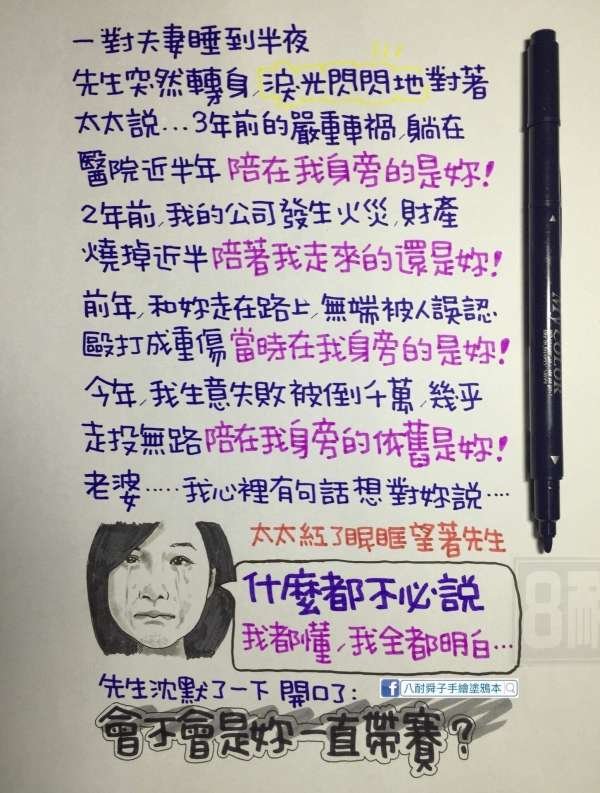 一對夫妻睡到半夜
先生突然轉身,淚光閃閃地對著
太太說…3年前的嚴重車禍,躺在
醫院近半年陪在我身旁的是妳!
2年前,我的公司發生火災,財產
燒掉近半陪著我走來的還是妳!
前年,和妳走在路上,無端被人誤認
毆打成重傷當時在我身旁的是妳!
今年,我生意失敗被倒千萬,幾乎
走投無路陪在我身旁的依舊是妳!
老婆……我心裡有句話想對妳說…
太太紅了眼眶望著先生
什麼都不必說
我都懂,我全都明白…
先生沈默了一下 開口了:
八耐舜子手繪塗鴉本
會不會是妳一直帶賽?
MY COLOR
8耐